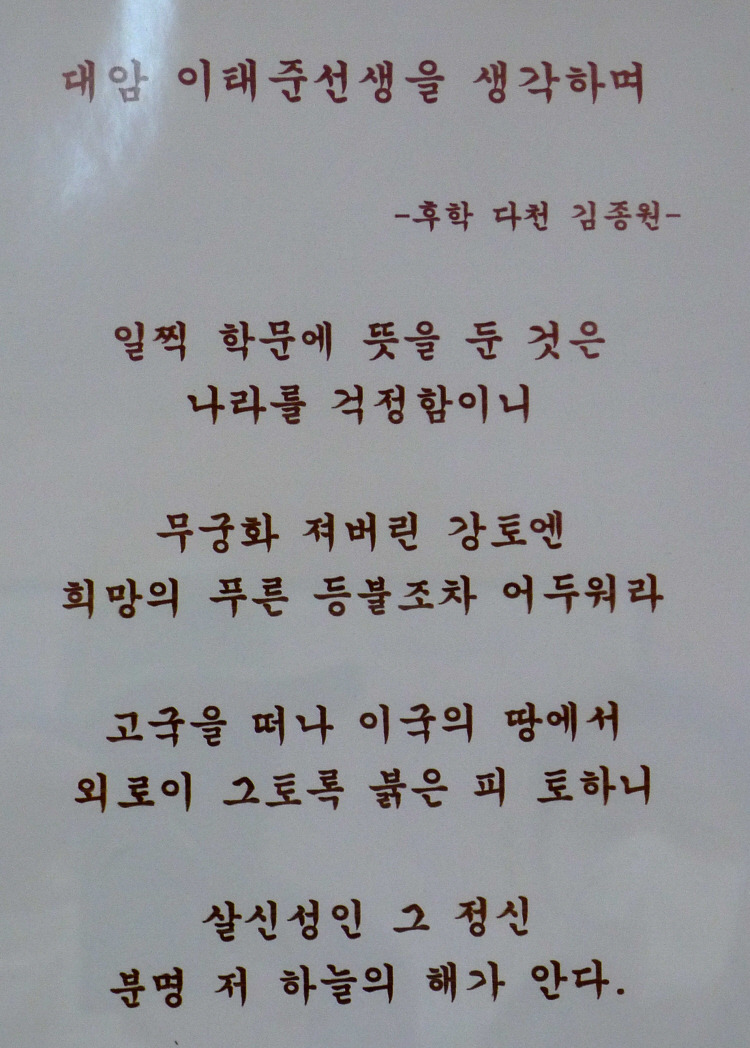 대암 이태준선생을 생각하며
-후학 다천 김종원-
일찍 학문에 뜻을 둔 것은
나라를 걱정함이니
무궁화 져버린 강토엔
희망의 푸른 등불조차 어두워라
고국을 떠나 이국의 땅에서
외로이 그토록 붉은 피 토하니
살신성인 그 정신
분명 저 하늘의 해가 안다.